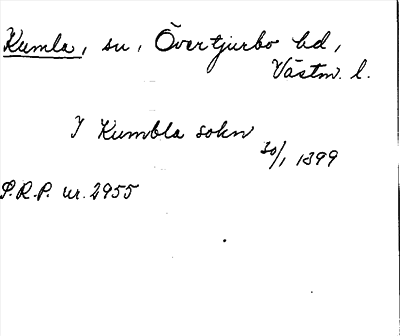 Kumla, sn, Övertjurbo hd,
Västm. l.
I Kumbla sokn
30/1 1399
S.R.P. nr. 2955